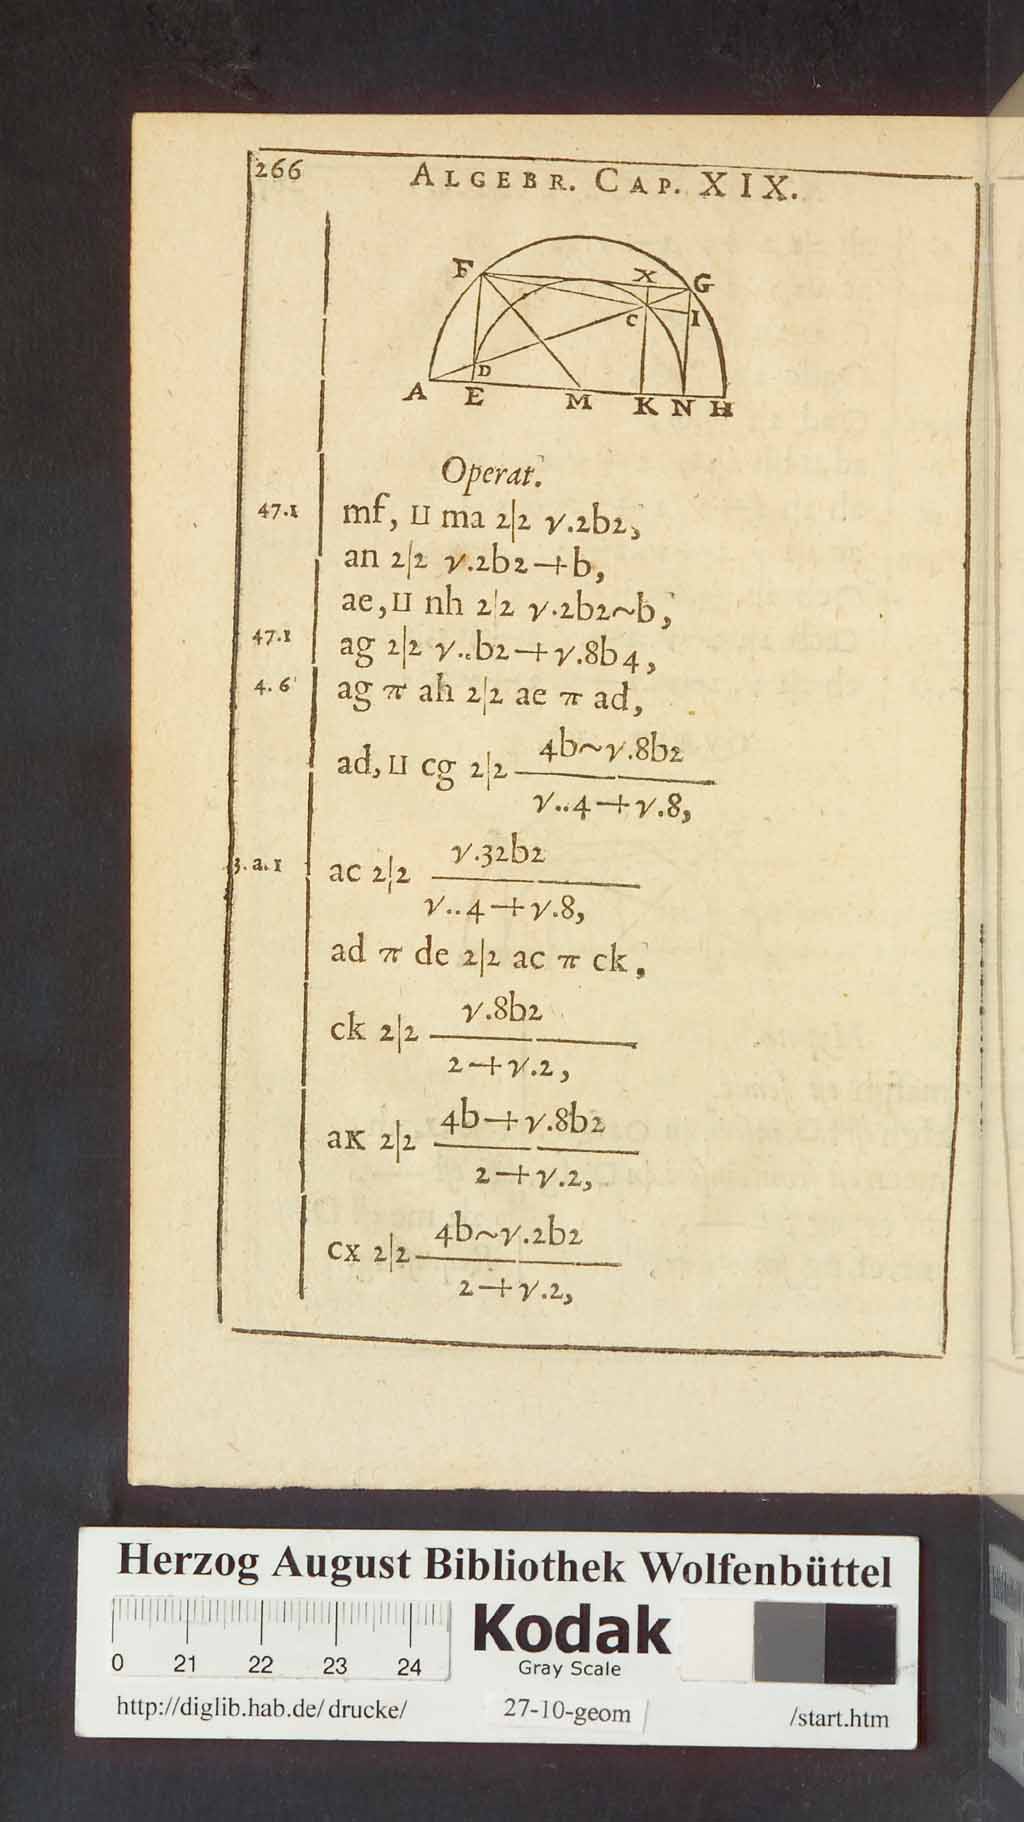 266 ALGEBR. CAP. XIX.
F X G
C I
D
A E M K N H
Operat.
47.1 mf, ⊔ ma 2|2 √.2b2,
an 2|2 √.2b2-+b,
ae, ⊔ nh 2|2 √.2b2~b,
47.1 ag 2|2 √..b2-+√.8b4,
4.6 ag π ah 2|2 ae π ad,
ad, ⊔ cg 2|2 4b~√.8b2
√..4-+√.8,
3.a.1 ac 2|2 √.32b2
√..4-+√.8,
ad π de 2|2 ac π ck,
ck 2|2 √.8b2
2-+√.2,
aк 2|2 4b-+√.8b2
2-+√.2,
cx 2|2 4b~√.2b2
2-+√.2,
Herzog August Bibliothek Wolfenbüttel
Kodak
Gray Scale
0 21 22 23 24
http://diglib.hab.de/drucke/ 27-10-geom /start.htm